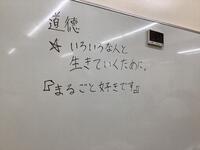 道徳
☆ いろいろな人と
生きていくために。
『まるごと好きです』